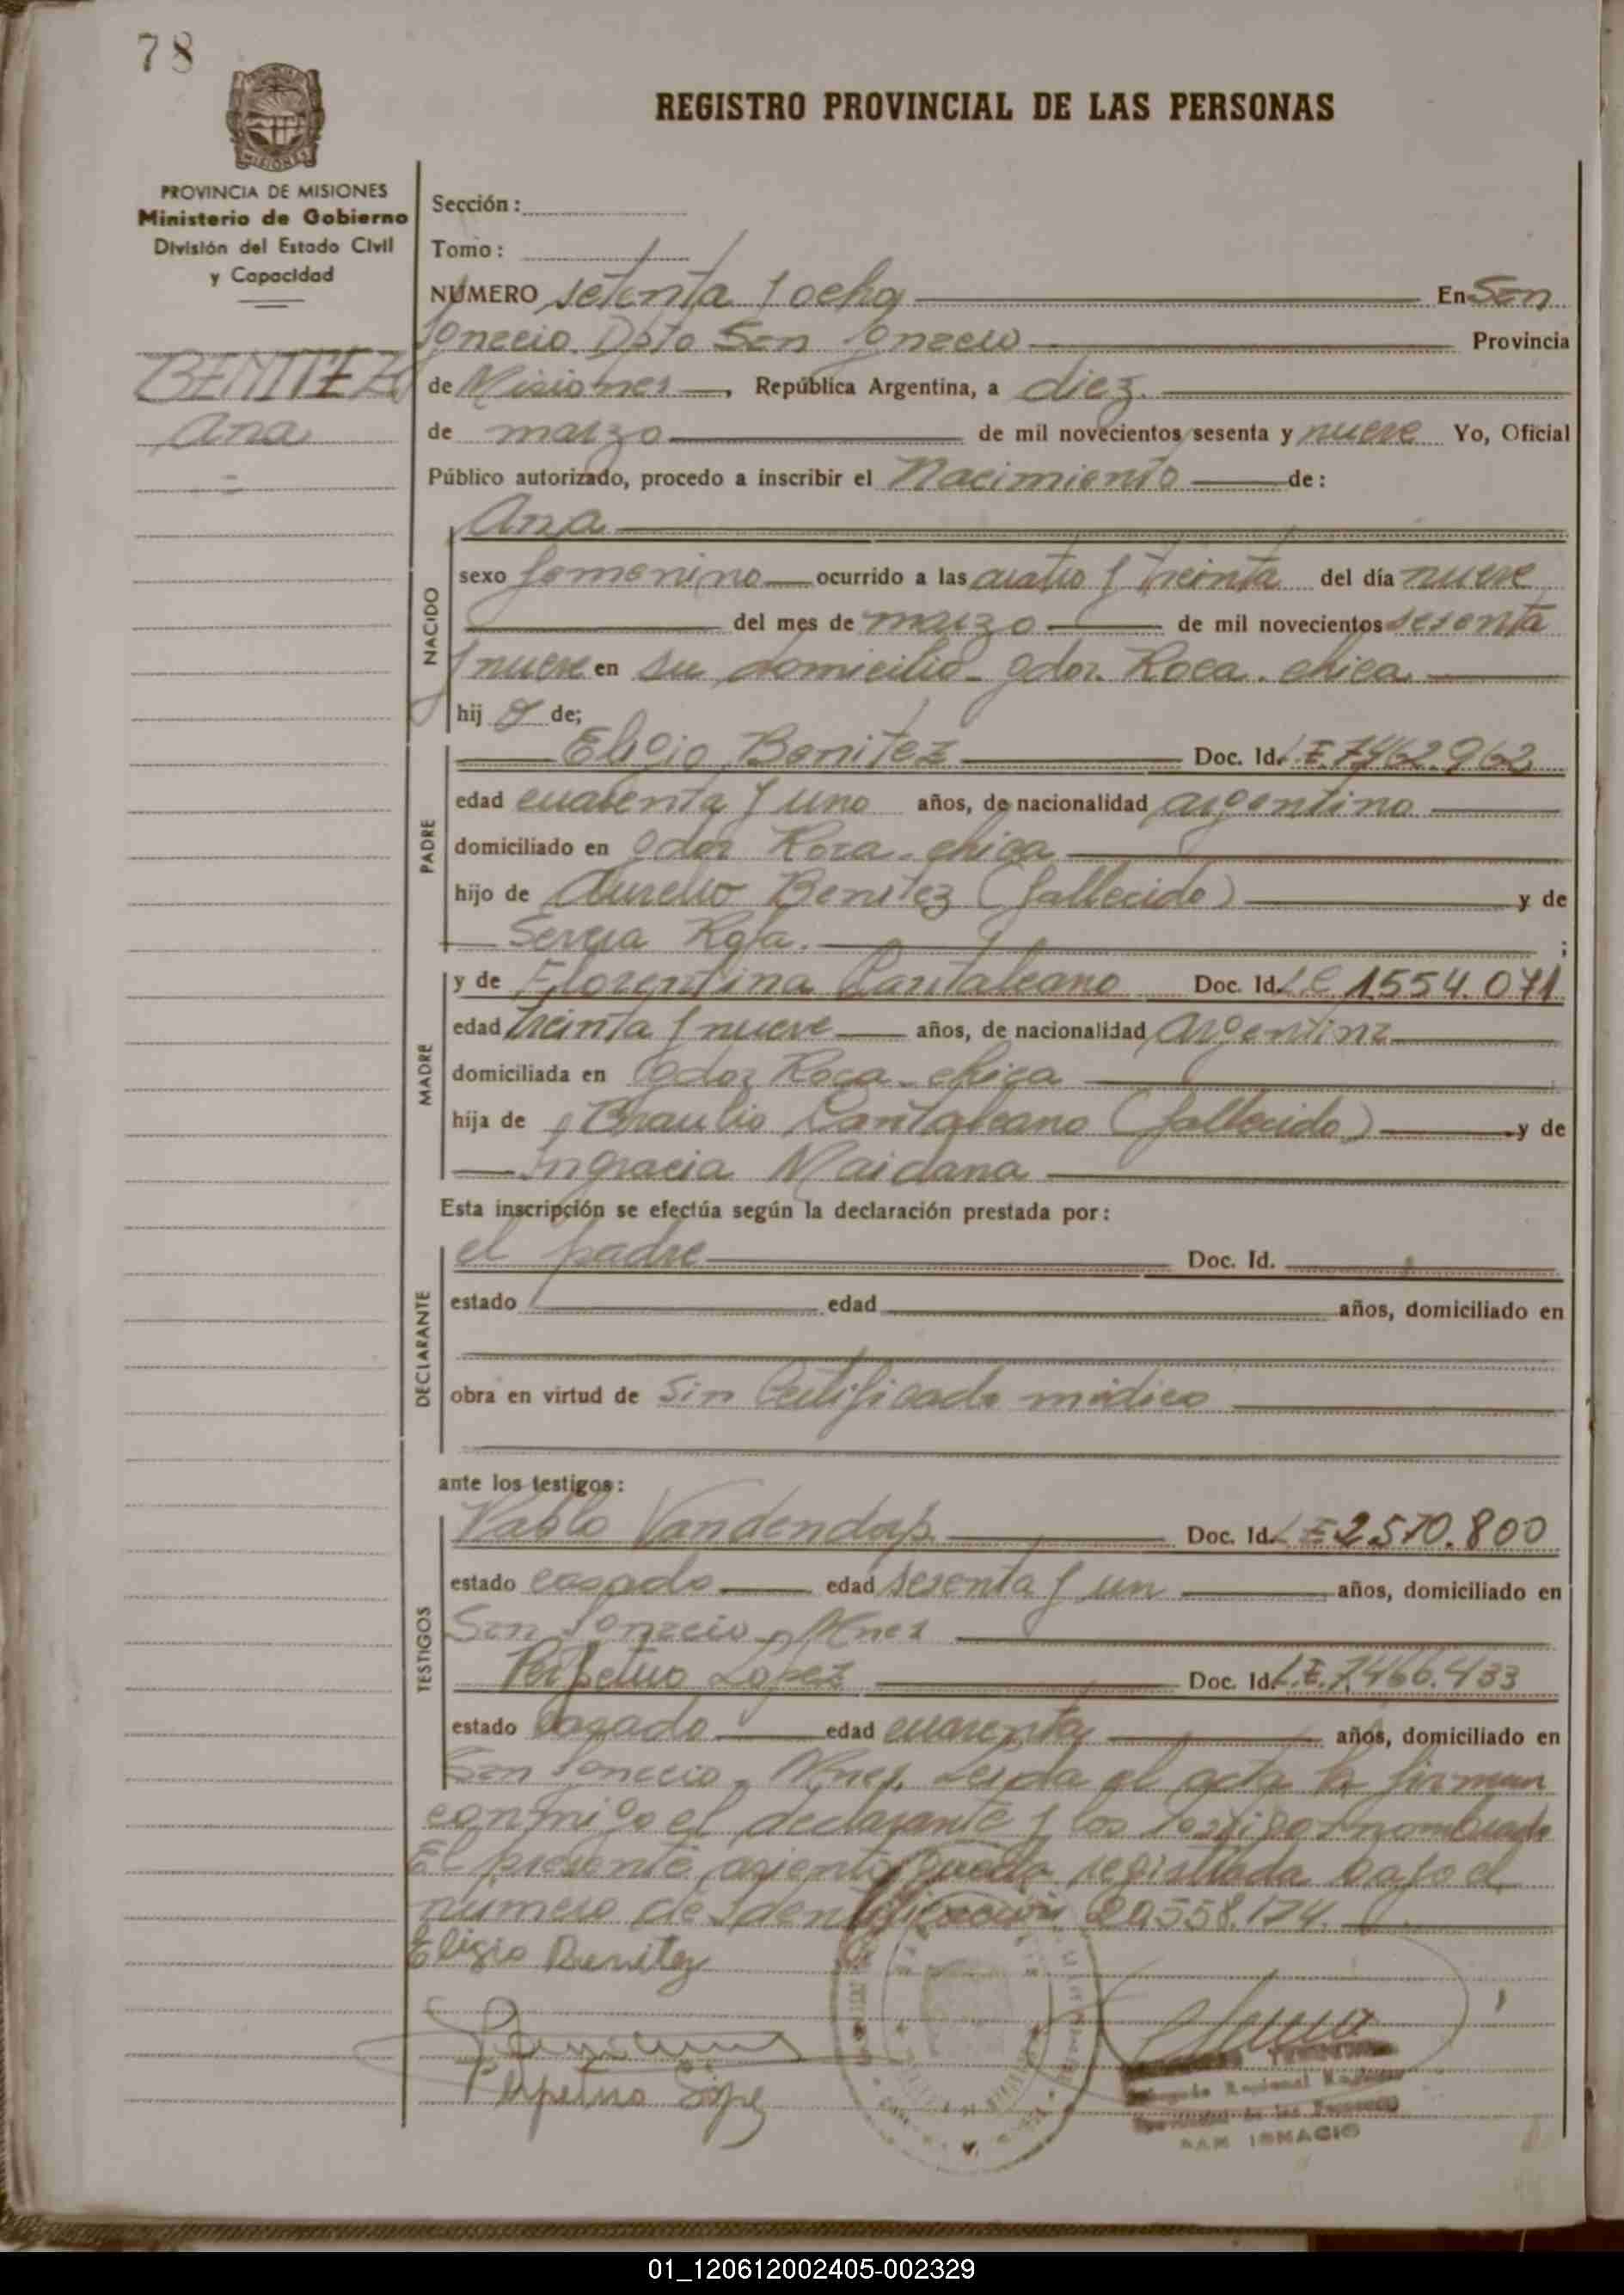 78
REGISTRO PROVINCIAL DE LAS PERSONAS
MISIONES
PROVINCIA DE MISIONES
Ministerio de Gobierno
División del Estado Civil
y Capacidad
BENITEZ
Ana
Sección:
Tomo:
NUMERO setenta y ocho En San
Ignacio Dpto San Ignacio Provincia
de Misiones, República Argentina, a diez
de marzo de mil novecientos sesenta y nueve Yo, Oficial
Público autorizado, procedo a inscribir el Nacimiento de:
NACIDO
Ana
sexo femenino ocurrido a las cuatro y treinta del día nueve
del mes de marzo de mil novecientos sesenta
y nueve en su domicilio - Gdor. Roca. chica
hij a de;
PADRE
Eligio Benitez Doc. Id. L.E. 7.462.962
edad cuarenta y uno años, de nacionalidad argentino
domiciliado en Gdor Roca - chica
hijo de Aurelio Benitez (fallecido) y de
;
MADRE
y de Florentina Cantaleano Doc. Id. L.C 1.554.071
edad treinta y nueve años, de nacionalidad Argentina
domiciliada en Gdor Roca - chica
hija de Braulio Cantaleano (fallecido) y de
Ingracia Maidana
Esta inscripción se efectúa según la declaración prestada por:
DECLARANTE
el padre Doc. Id.
estado edad años, domiciliado en
obra en virtud de Sin Certificado médico
ante los testigos:
TESTIGOS
Pablo Vandendorp. Doc. Id. L.E 2.570.800
estado casado edad sesenta y un años, domiciliado en
San Ignacio, Mnes
Perpetuo Lopez Doc. Id. L.E. 7.466.433
estado casado edad cuarenta años, domiciliado en
San Ignacio, Mnes. Leida el acta la firman
conmigo el declarante y los testigos nombrado
El presente asiento queda registrada bajo el
numero de Identificación 20.558.174.
Eligio Benitez
Perpetuo Lopez
SAN IGNACIO
01_120612002405-002329